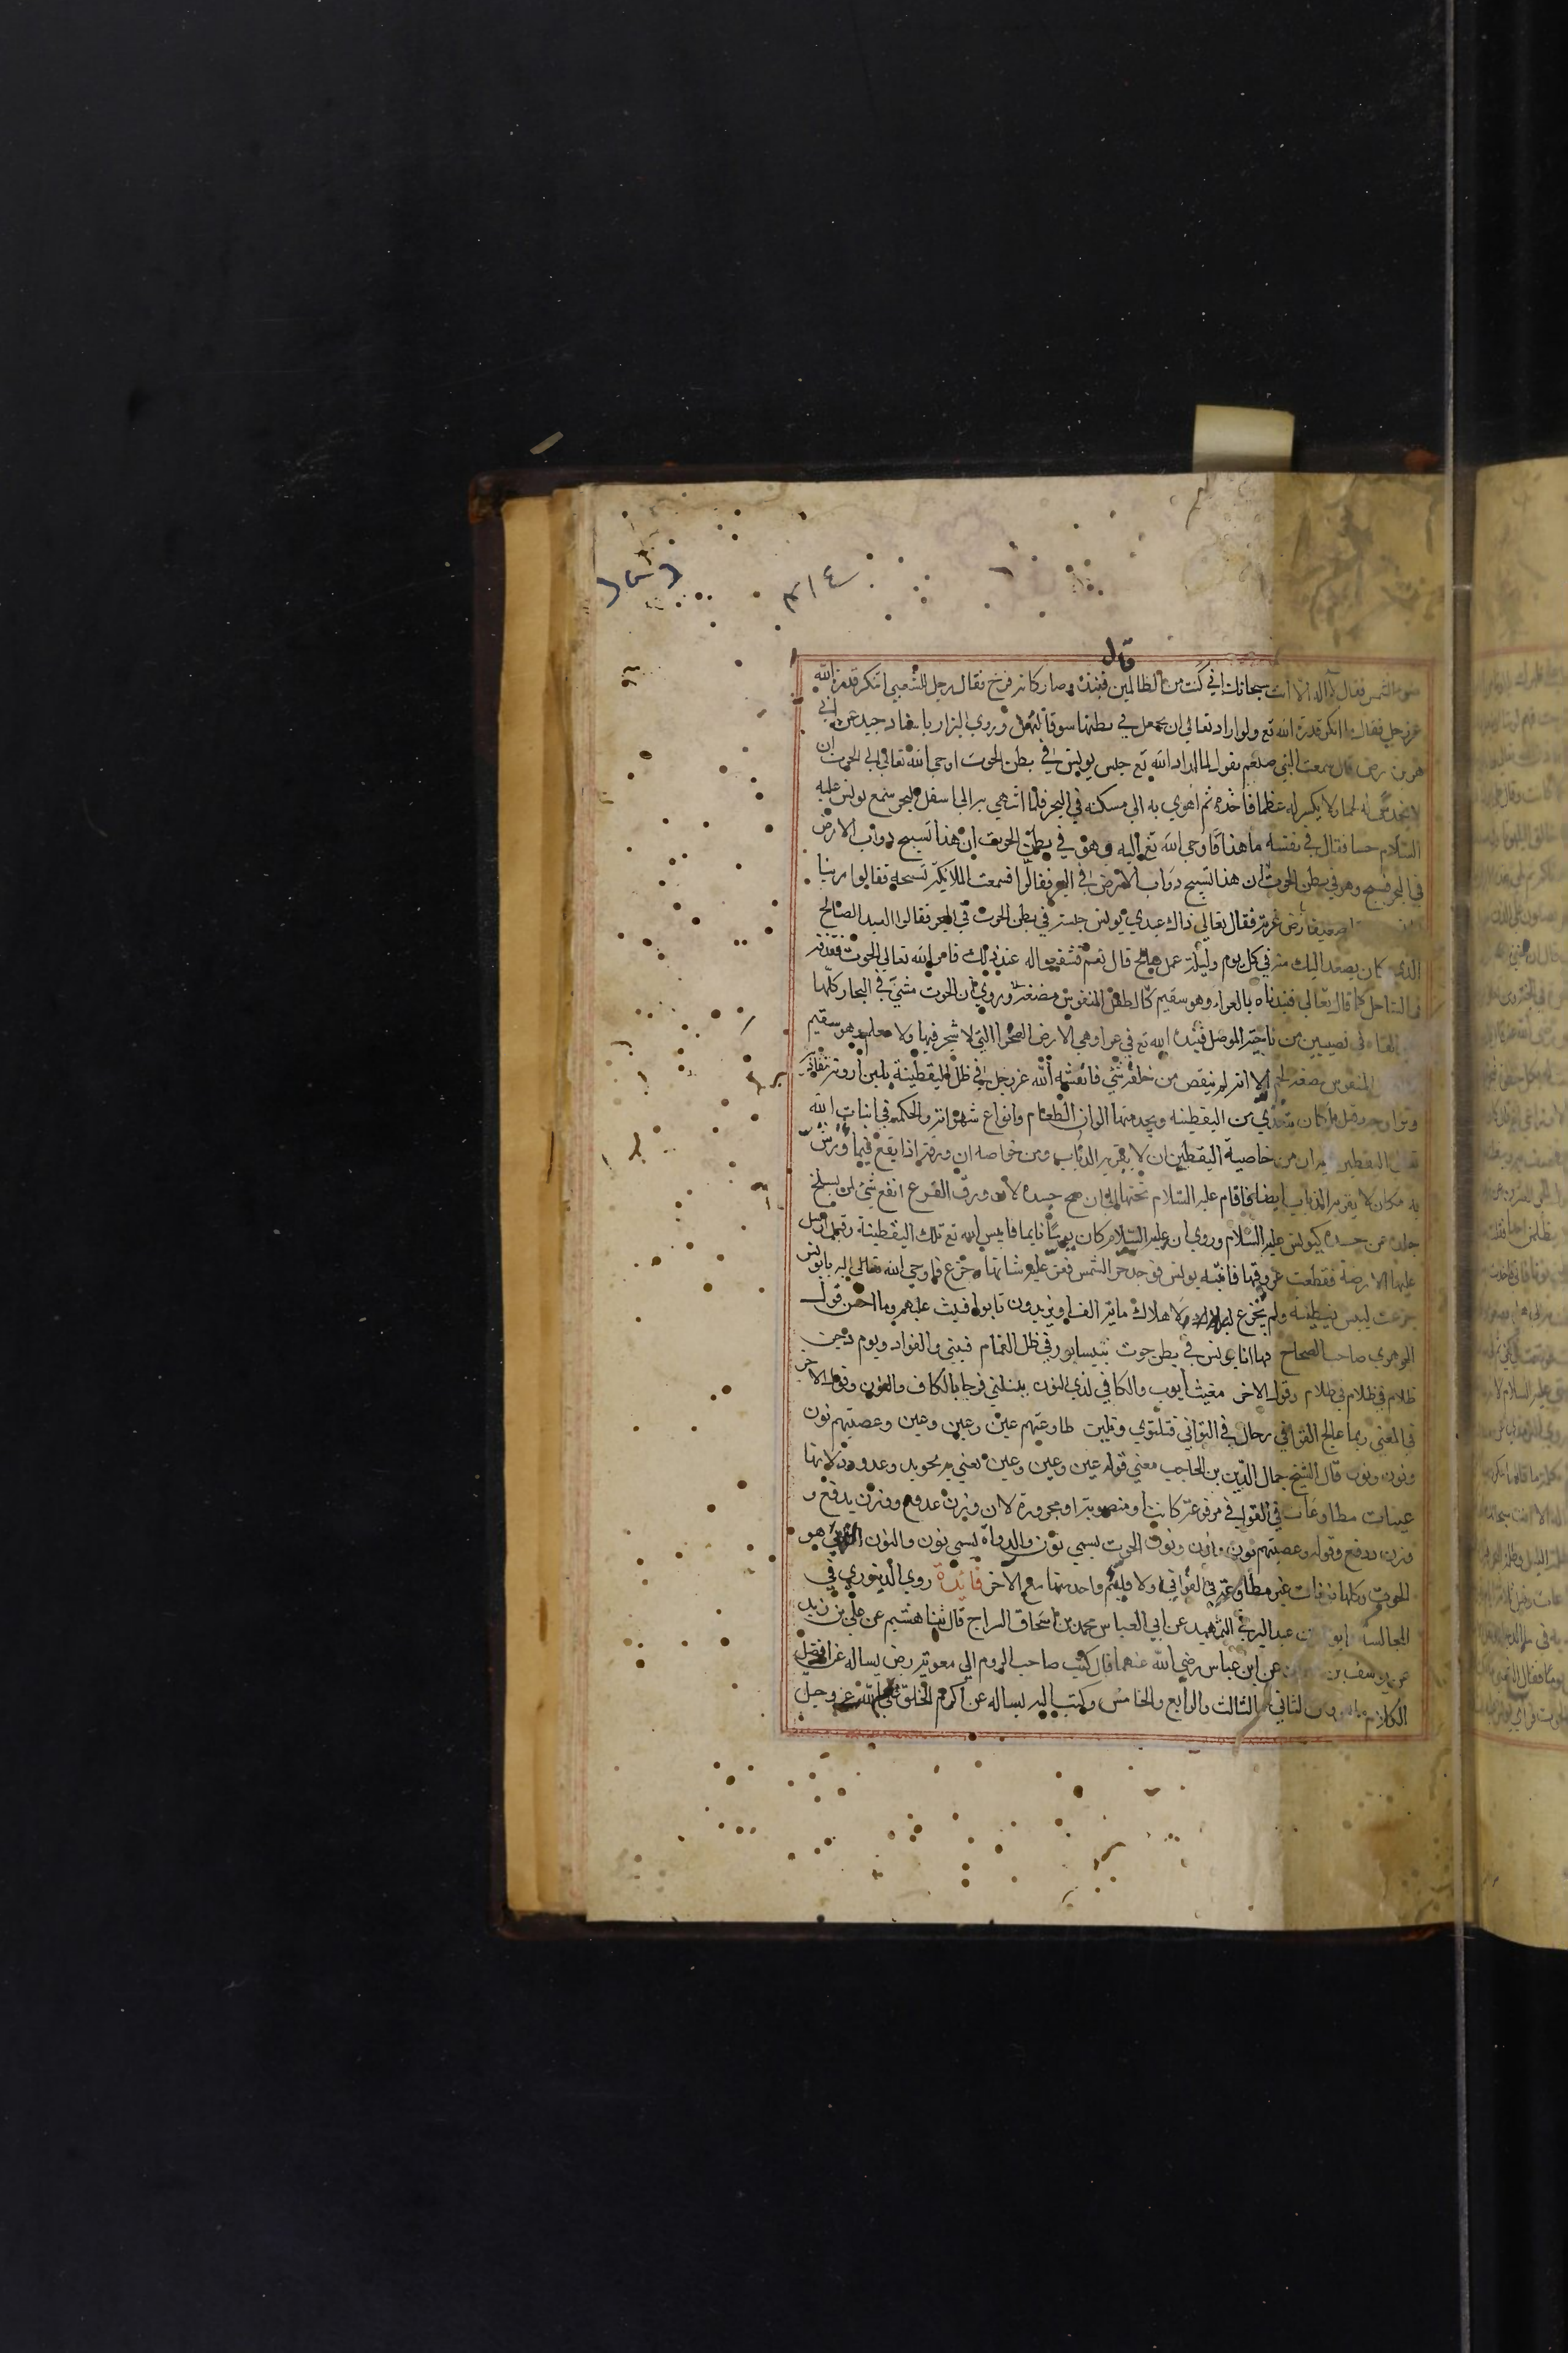 ٣١٤
قال
الشمس فقال لا اله الا انت سبحانك اني كنت من الظالمين فنبذه وصار كانه فرخ فقال رجل للشعبي اتنكر قدرة الله
عز وجل فقال ا انكر قدرة الله تع ولو اراد تعالى ان يجعل في بطنها سوقا لفعل وروي البزار باسناد جيد عن ابي
هريرة رض قال سمعت النبي صلعم يقول لما اراد الله تع حبس يونس في بطن الحوت اوحي الله تعالى الي الحوت ان
لا يخدش له لحما ولا يكسر له عظما فاخذه ثم اهوي به الي مسكنه في البحر فلما انتهي به الي اسفل البحر سمع يونس عليه
السلام حسا فقال في نفسه ما هذا فاوحي الله تع اليه وهو في بطن الحوت ان هذا تسبيح دواب الارض
في البحر فسبح وهو في بطن الحوت ان هذا تسبيح دواب الارض في البحر فقالوا فسمعت الملايكة تسبيحه فقالوا ربنا
بارض غريبة فقال تعالى ذاك عبدي يونس حبسته في بطن الحوت في البحر فقالوا العبد الصالح
الذي كان يصعد اليك منه في كل يوم وليلة عمل صالح قال نعم فشفعوا له عند ذلك فامر الله تعالى الحوت فقذفه
في الساحل كما قال تعالى فنبذناه بالعراء وهو سقيم كالطفل المنفوس مضغة وروي ان الحوت مشي في البحار كلها
القاه في نصيبين من ناحية الموصل فنبذه الله تع في عراء وهي الارض الصحرا التي لا شجر فيها ولا معلم وهو سقيم
المنفوس مضغة لحم الا انه لم ينقص من خلقه شئ فانعشه الله عز وجل في ظل اليقطينة بلبن اروية تغاديه
وتراوحه وقيل بل كان يتغذي من اليقطينه ويجد منها الوان الطعام وانواع شهواته والحكمة في انبات الله
اليقطين ان من خاصية اليقطين ان لا يقربه الذباب ومن خواصه ان ورقه اذا نقع فيما ورش
به مكان لا يقربه الذباب ايضا فاقام عليه السلام تحتها الي ان صح جسده لان ورق القرع انفع شئ لمن يسلخ
جلده عن جسده كيونس عليه السلام وروي ان عليه السلام كان يوما نايما فايبس الله تع تلك اليقطينة وقيل ارسل
عليها الارضة فقطعت عروقها فانتبه يونس فوجد حر الشمس فعز عليه شانها وجزع فاوحي الله تعالى اليه يا يونس
جزعت ليبس يقطينه ولم تجزع لاهلاك ماية الف او يزيدون تابوا فتبت عليهم وما احسن قول
الجوهري صاحب الصحاح فها انا يونس في بطن حوت بنيسابور في ظل الغمام فبيتي والفؤاد ويوم دجن
ظلام في ظلام في ظلام وقول الاخر مغيث ايوب والكافي لذي النون يسئلني فرجا بالكاف والنون وقول الاخر
في المعني ربما عالج القوافي رجال في القوافي فتلتوي وتلين طاوعتهم عين وعين وعين وعصتهم نون
ونون ونون قال الشيخ جمال الدين بن الحاجب معني قوله عين وعين وعين يعني به نحو يد وغد ودد لانها
عينات مطاوعات في القوافي مرفوعة كانت او منصوبة او مجرورة لان وزن غد فع ووزن يد فع و
وزن دد فع وقوله وعصتهم نون ونون ونون الحوت يسمي نون والدواة يسمي نون والنون الذي هو
الحوت وكلها نونات غير مطاوعة في القوافي ولا يلتئم واحد منها مع الاخر فايدة روي الدينوري في
المجالسة ابو عبد البر في التمهيد عن ابي العباس محمد بن اسحاق السراج قال ثنا هشيم عن علي بن زيد
عن يوسف بن عن ابن عباس رضي الله عنهما قال كتب صاحب الروم الي معوية رض يساله عن افضل
الكلام والثاني والثالث والرابع والخامس وكتب اليه يساله عن اكرم الخلق علي الله عز وجل